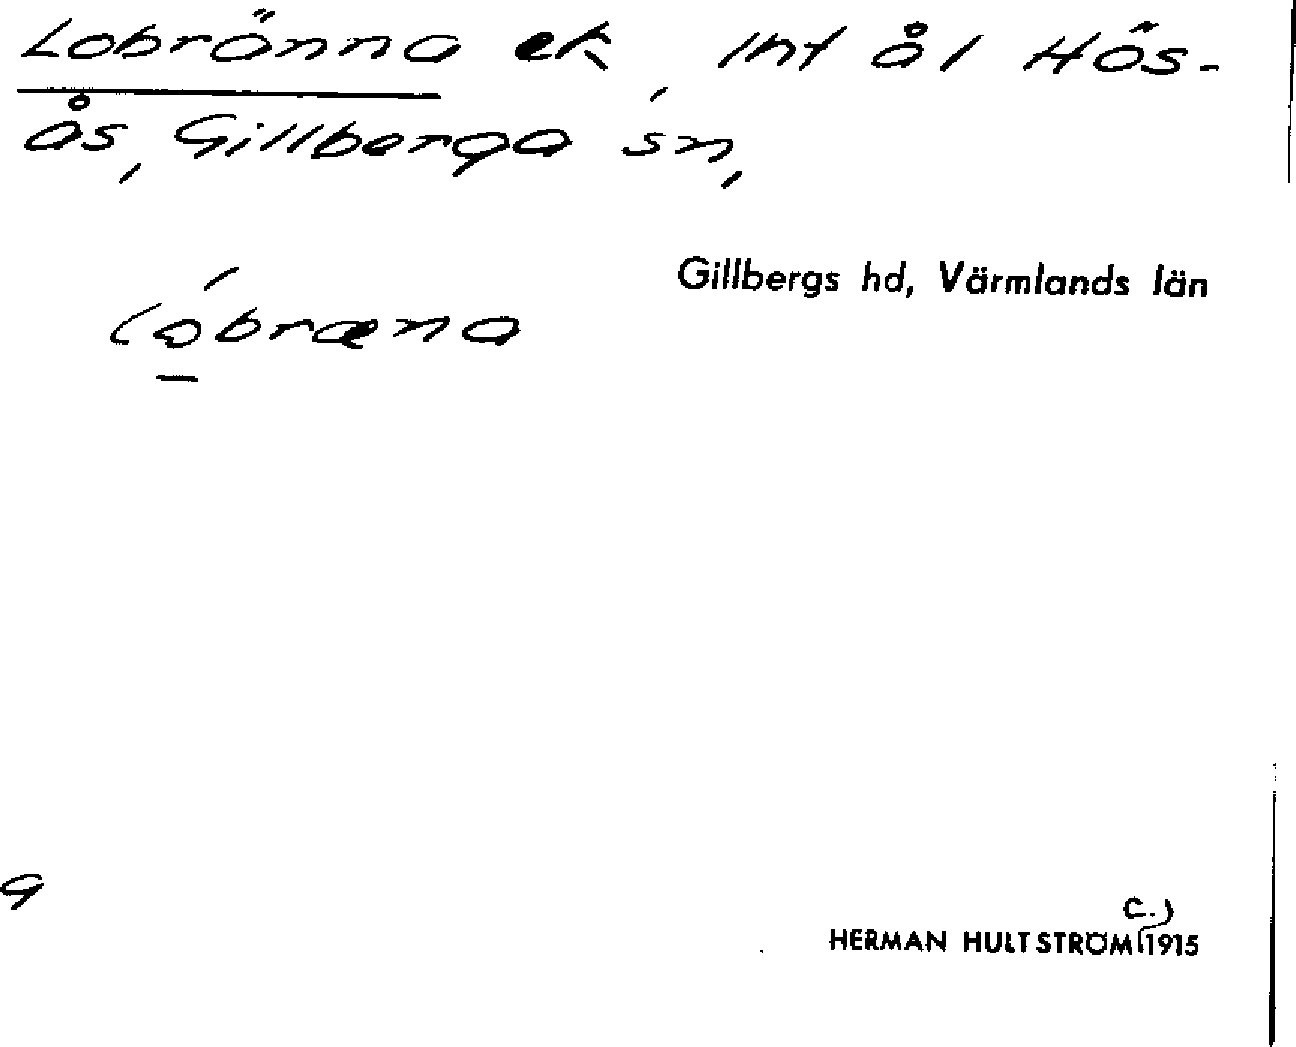 Lobränna ek, int ål Hös-
ås, Gillberga sn,
Gillbergs hd, Värmlands län
lo̲bræna
9
c.)
HERMAN HULTSTRÖM 1915